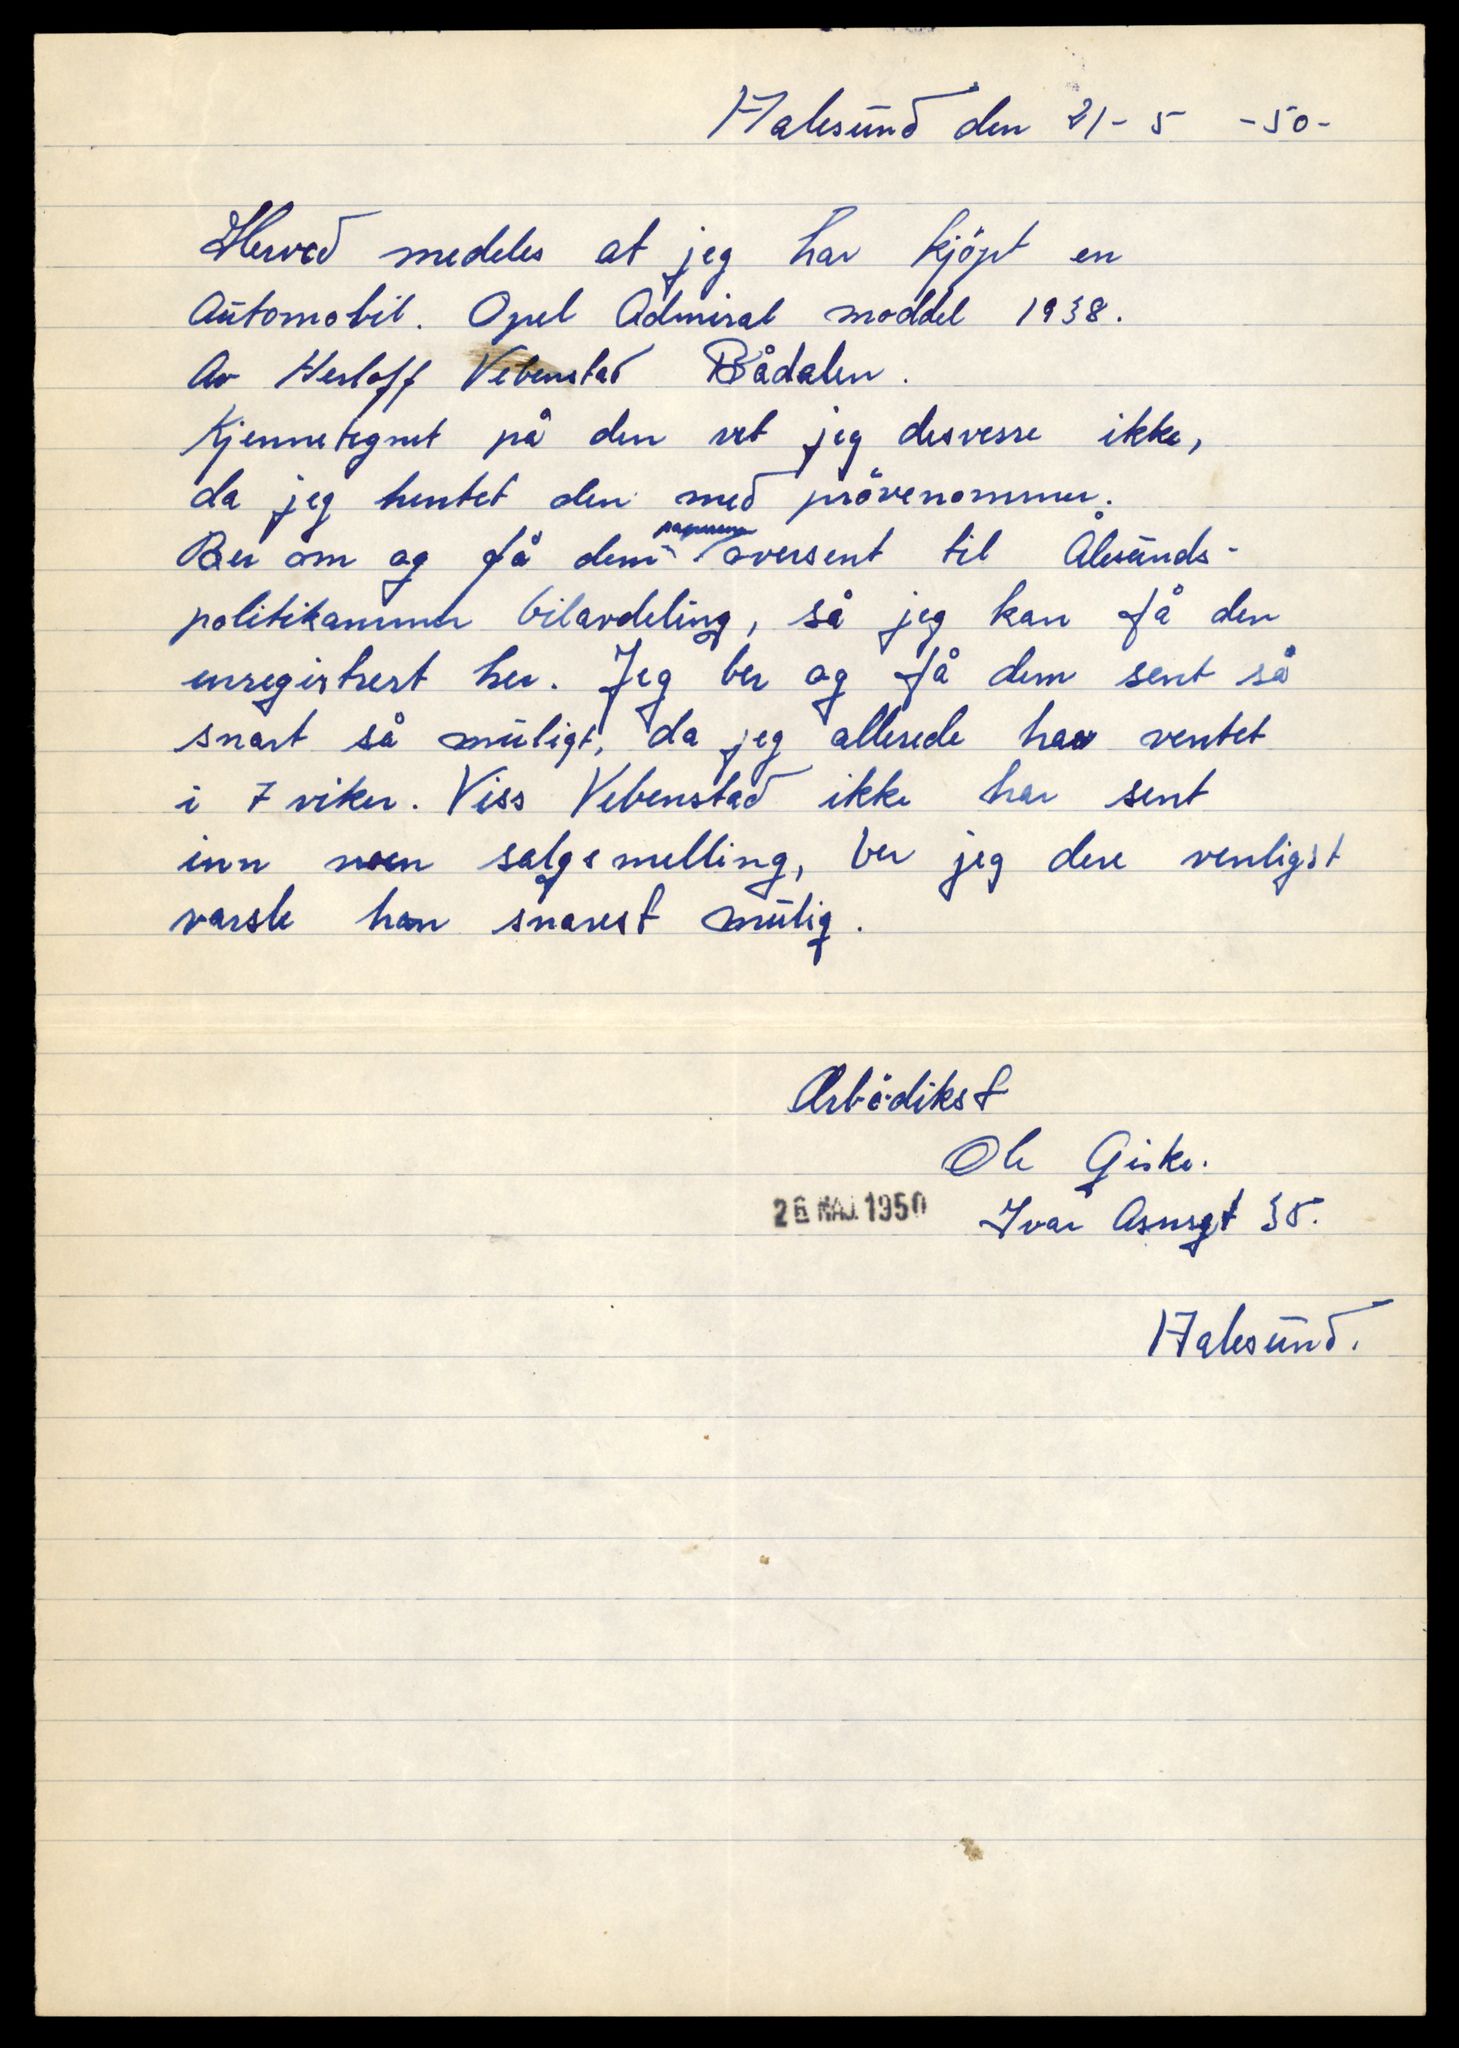 Aalesund den 21-5 -50-
Herved medeles at jeg har kjöpt en
Automobil. Opel Admiral moddel 1938.
Av Herloff Vebenstad Bådalen.
Kjennetegnet på den vet jeg desverre ikke,
da jeg hentet den med prövenommer.
papirene
Ber om og få dem oversent til Ålesunds-
politikammer bilavdeling, så jeg kan få den
enregistrert her. Jeg ber og få dem sent så
snart så muligt, da jeg allerede har ventet
i 7 viker. Viss Vebenstad ikke har sent
inn noen salgsmelling, ber jeg dere venligst
varsle han snarest mulig.
Ærbödikst
Ole Giske.
26 MAJ 1950 Ivar Aasensgt 35.
Aalesund.